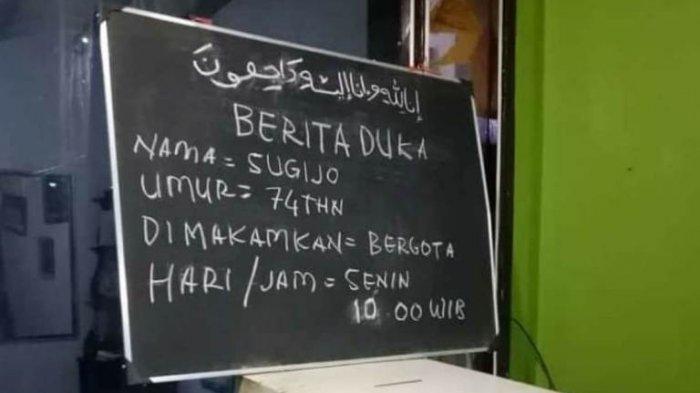 إنا لله وانا إليه راجعون
BERITA DUKA
NAMA = SUGIJO
UMUR = 74 THN
DIMAKAMKAN = BERGOTA
HARI / JAM = SENIN
10.00 WIB